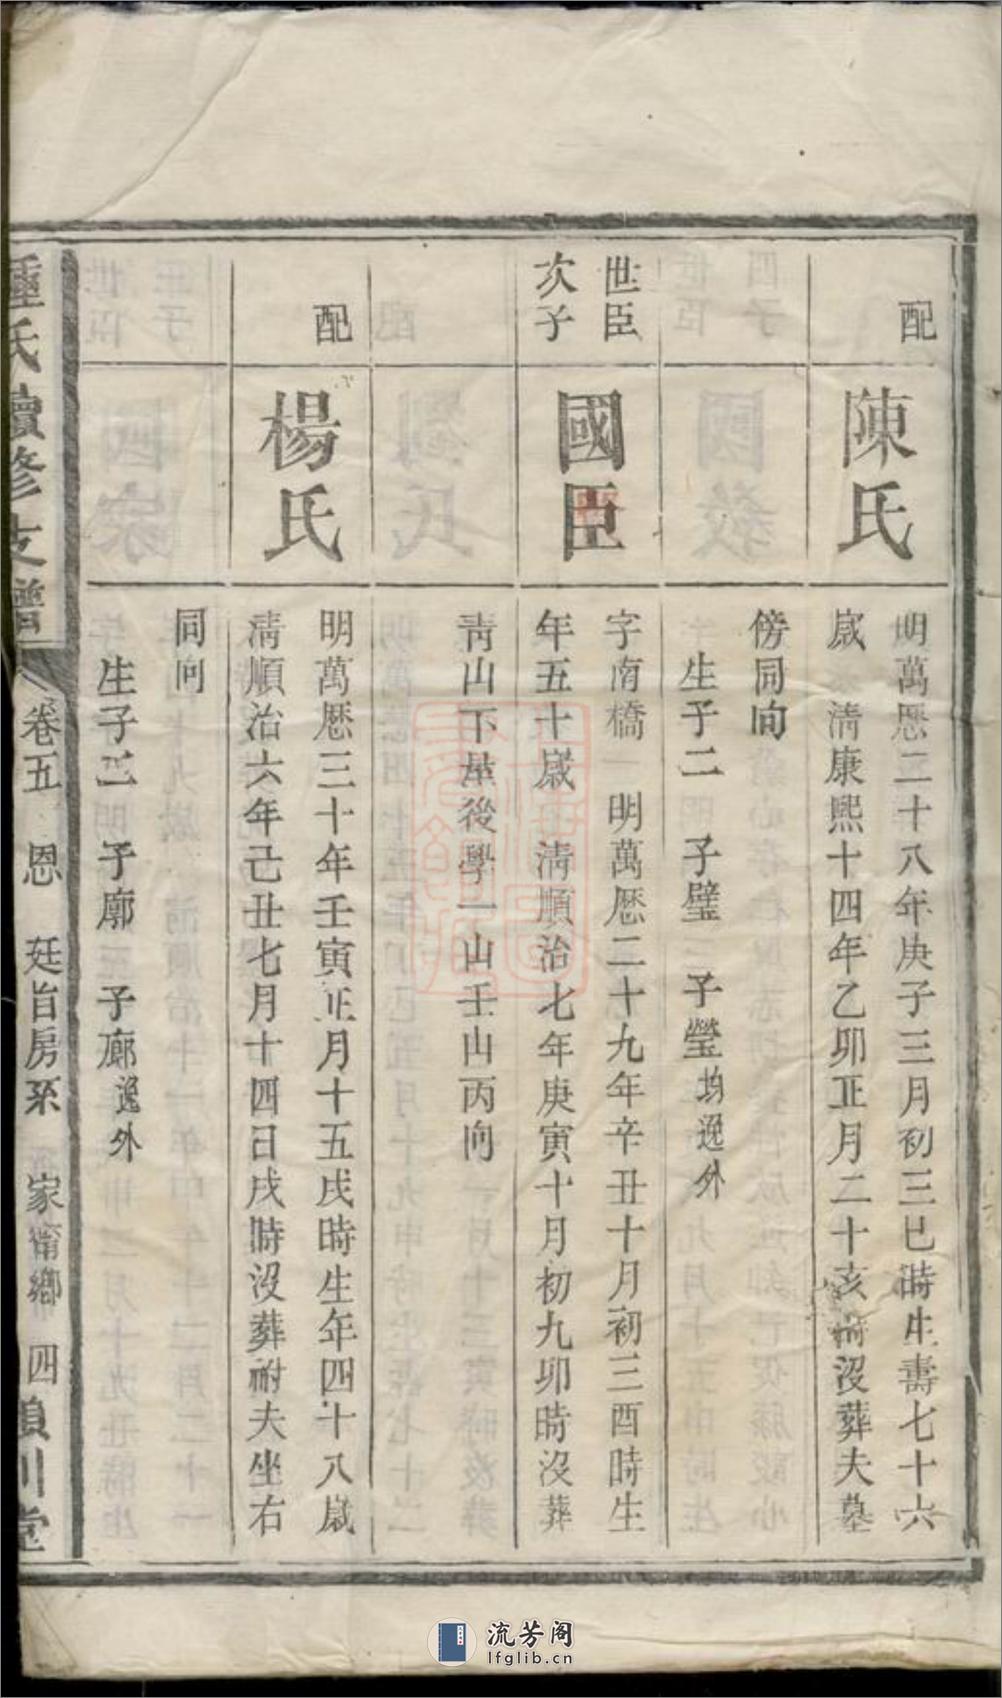 配
陳氏
明萬歷二十八年庚子三月初三巳時生壽七十六
歲 清康熙十四年乙卯正月二十亥時沒葬夫墓
傍同向
生子二 子璧 子瑩均逸外
世臣
次子
國臣
字南橋 明萬歷二十九年辛丑十月初三酉時生
年五十歲 清順治七年庚寅十月初九卯時沒葬
靑山下屋後學一山壬山丙向
配
楊氏
明萬歷三十年壬寅正月十五戌時生年四十八歲
清順治六年己丑七月十四日戌時沒葬祔夫坐右
同向
生子二 子廓 子廊逸外
鍾氏續修支譜
卷五 恩 廷旨房系 家甯鄉 四
潁川堂
流芳阁
lfglib.cn